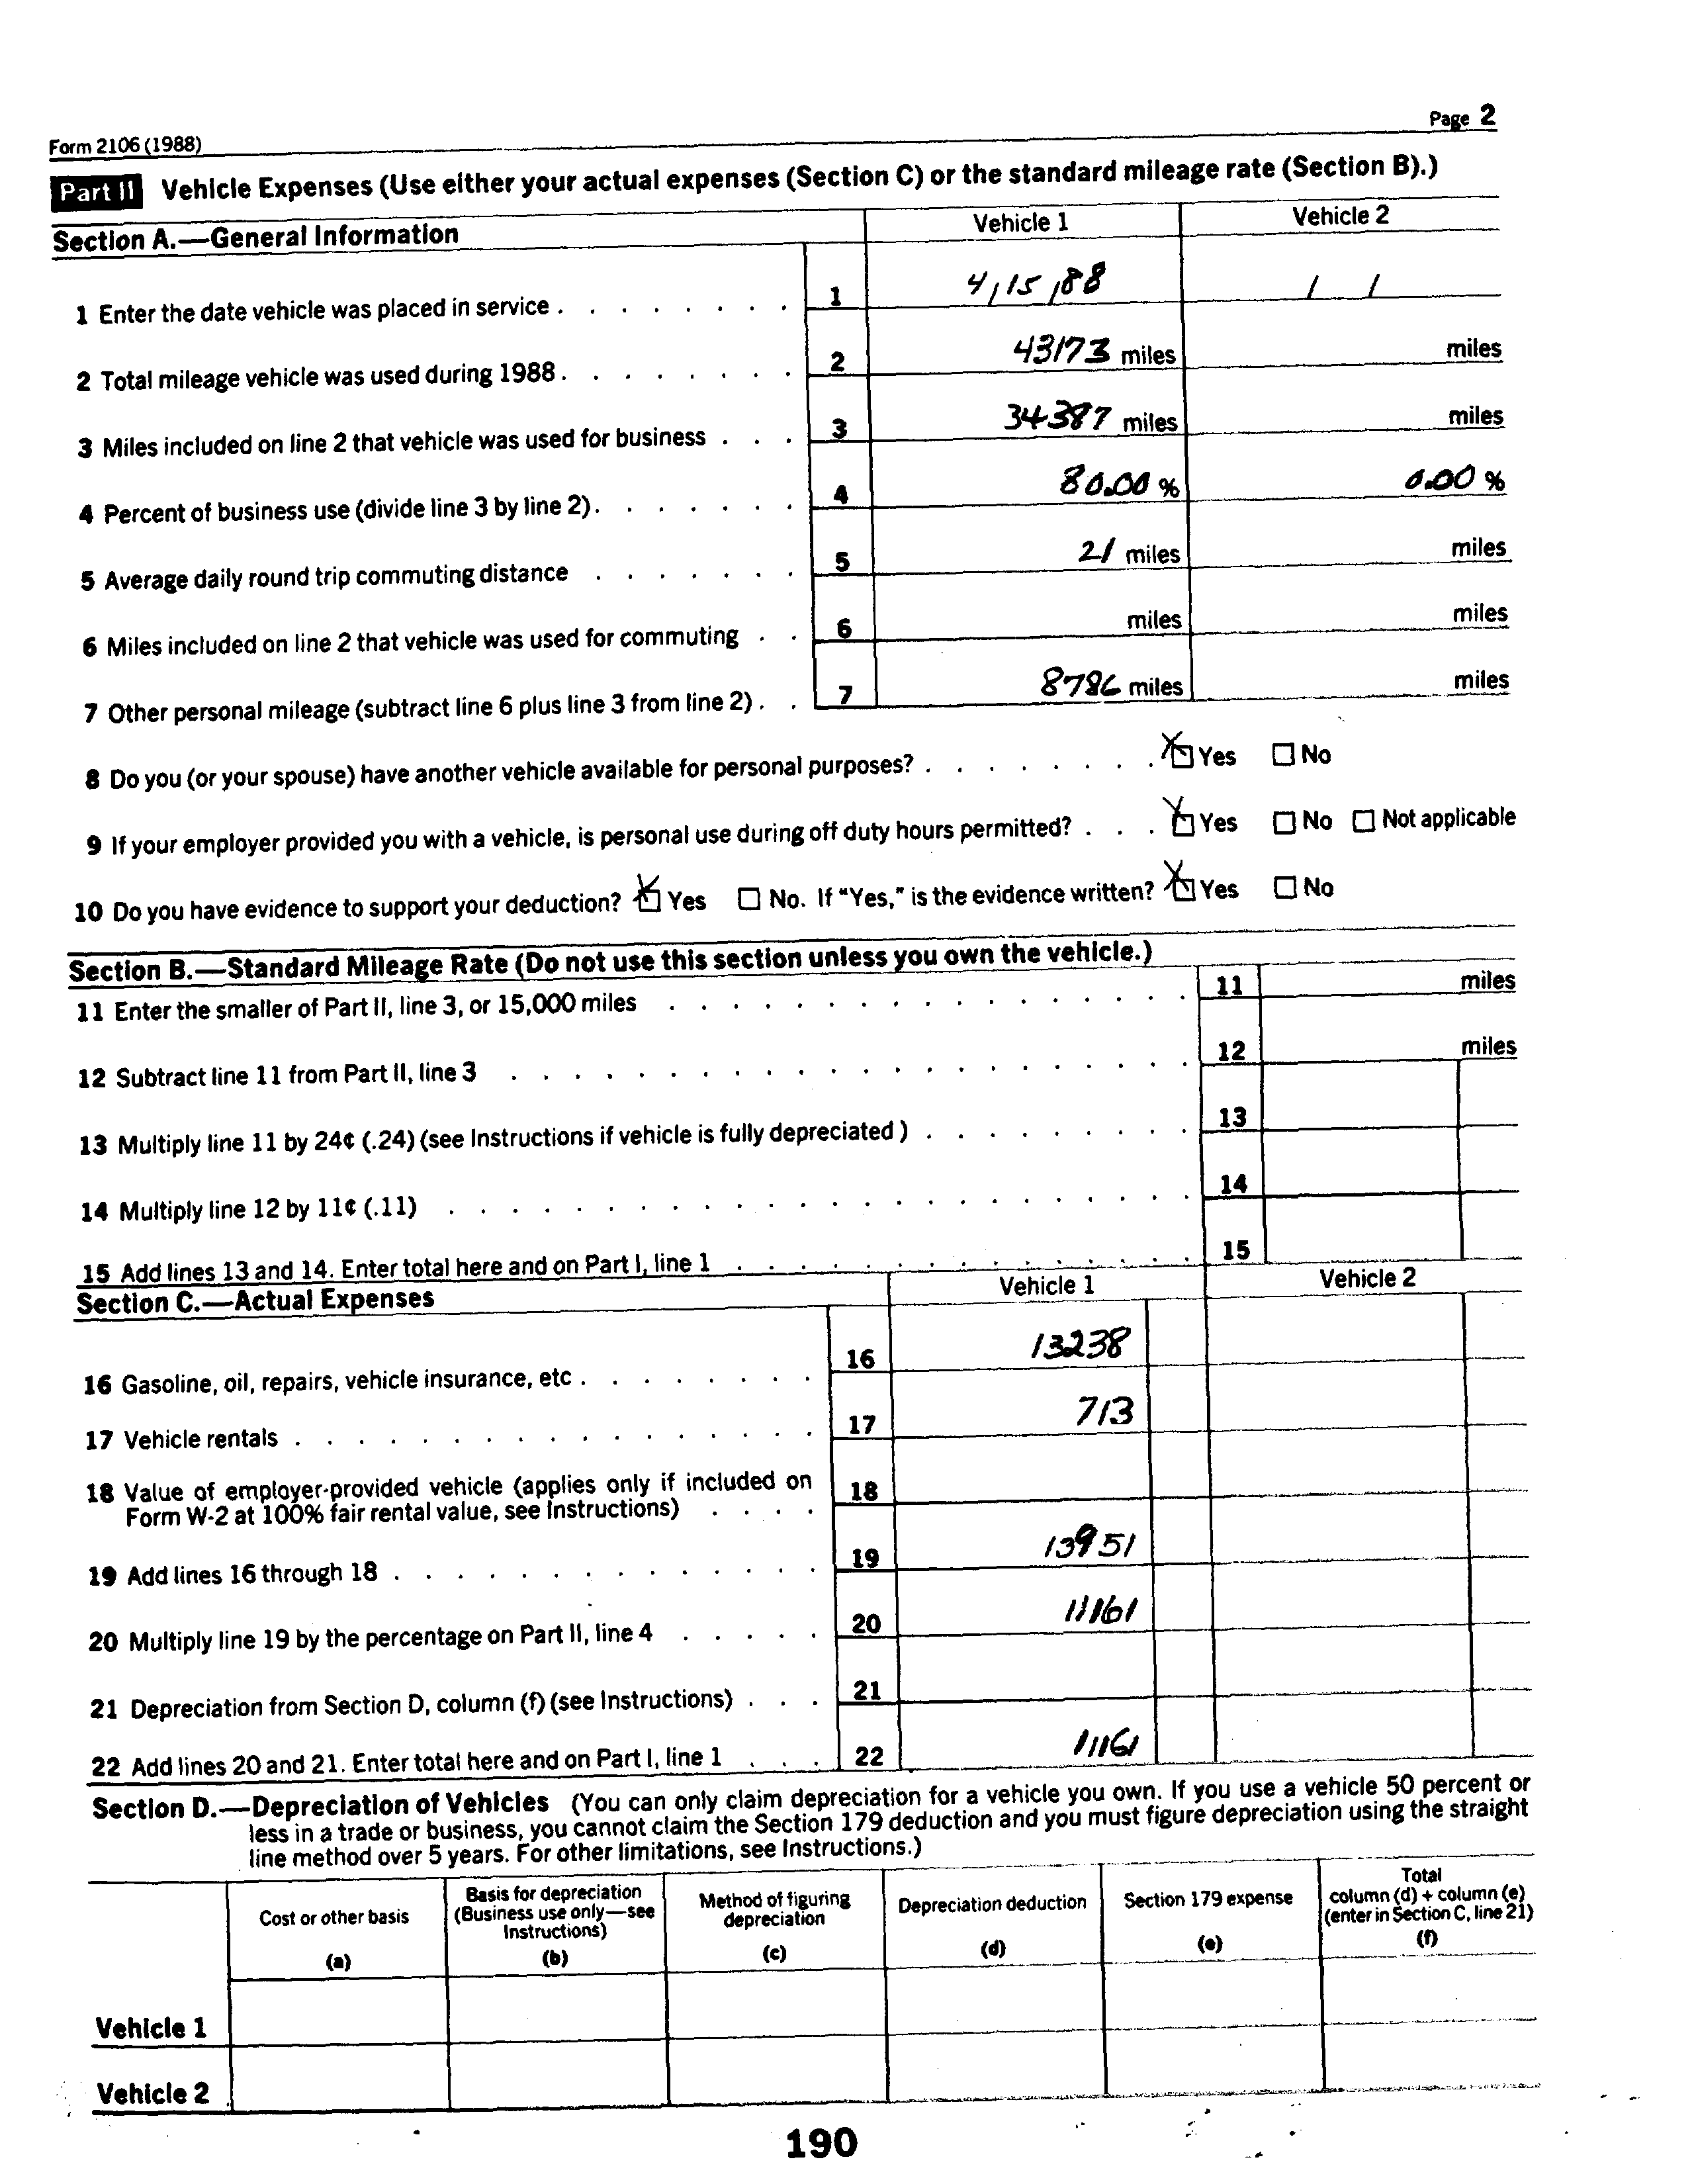 Form 2106 (1988)
Page 2
Part II Vehicle Expenses (Use either your actual expenses (Section C) or the standard mileage rate (Section B).)
Section A.—General Information
Vehicle 1
Vehicle 2
1 Enter the date vehicle was placed in service . . . . . . . . 1 4/15/88 / /
2 Total mileage vehicle was used during 1988 . . . . . . . . 2 43173 miles miles
3 Miles included on line 2 that vehicle was used for business . . . 3 34387 miles miles
4 Percent of business use (divide line 3 by line 2) . . . . . . . 4 80.00 % 0.00 %
5 Average daily round trip commuting distance . . . . . . . 5 21 miles miles
6 Miles included on line 2 that vehicle was used for commuting . . 6 miles miles
7 Other personal mileage (subtract line 6 plus line 3 from line 2) . . 7 8786 miles miles
8 Do you (or your spouse) have another vehicle available for personal purposes? . . . . . . . . X Yes No
9 If your employer provided you with a vehicle, is personal use during off duty hours permitted? . . . X Yes No Not applicable
10 Do you have evidence to support your deduction? X Yes No. If "Yes," is the evidence written? X Yes No
Section B.—Standard Mileage Rate (Do not use this section unless you own the vehicle.)
11 Enter the smaller of Part II, line 3, or 15,000 miles . . . . . . . . . . . . . . . . . 11 miles
12 Subtract line 11 from Part II, line 3 . . . . . . . . . . . . . . . . . . . . . . 12 miles
13 Multiply line 11 by 24¢ (.24) (see Instructions if vehicle is fully depreciated ) . . . . . . . . . 13
14 Multiply line 12 by 11¢ (.11) . . . . . . . . . . . . . . . . . . . . . . . . 14
15 Add lines 13 and 14. Enter total here and on Part I, line 1 . . . . . . . . . . . . . . . 15
Section C.—Actual Expenses
Vehicle 1
Vehicle 2
16 Gasoline, oil, repairs, vehicle insurance, etc . . . . . . . . 16 13238
17 Vehicle rentals . . . . . . . . . . . . . . . . . 17 713
18 Value of employer-provided vehicle (applies only if included on
Form W-2 at 100% fair rental value, see Instructions) . . . . 18
19 Add lines 16 through 18 . . . . . . . . . . . . . . 19 13951
20 Multiply line 19 by the percentage on Part II, line 4 . . . . . 20 11161
21 Depreciation from Section D, column (f) (see Instructions) . . . 21
22 Add lines 20 and 21. Enter total here and on Part I, line 1 . . . 22 11161
Section D.—Depreciation of Vehicles (You can only claim depreciation for a vehicle you own. If you use a vehicle 50 percent or
less in a trade or business, you cannot claim the Section 179 deduction and you must figure depreciation using the straight
line method over 5 years. For other limitations, see Instructions.)
Cost or other basis
(a)
Basis for depreciation
(Business use only—see
Instructions)
(b)
Method of figuring
depreciation
(c)
Depreciation deduction
(d)
Section 179 expense
(e)
Total
column (d) + column (e)
(enter in Section C, line 21)
(f)
Vehicle 1
Vehicle 2
190